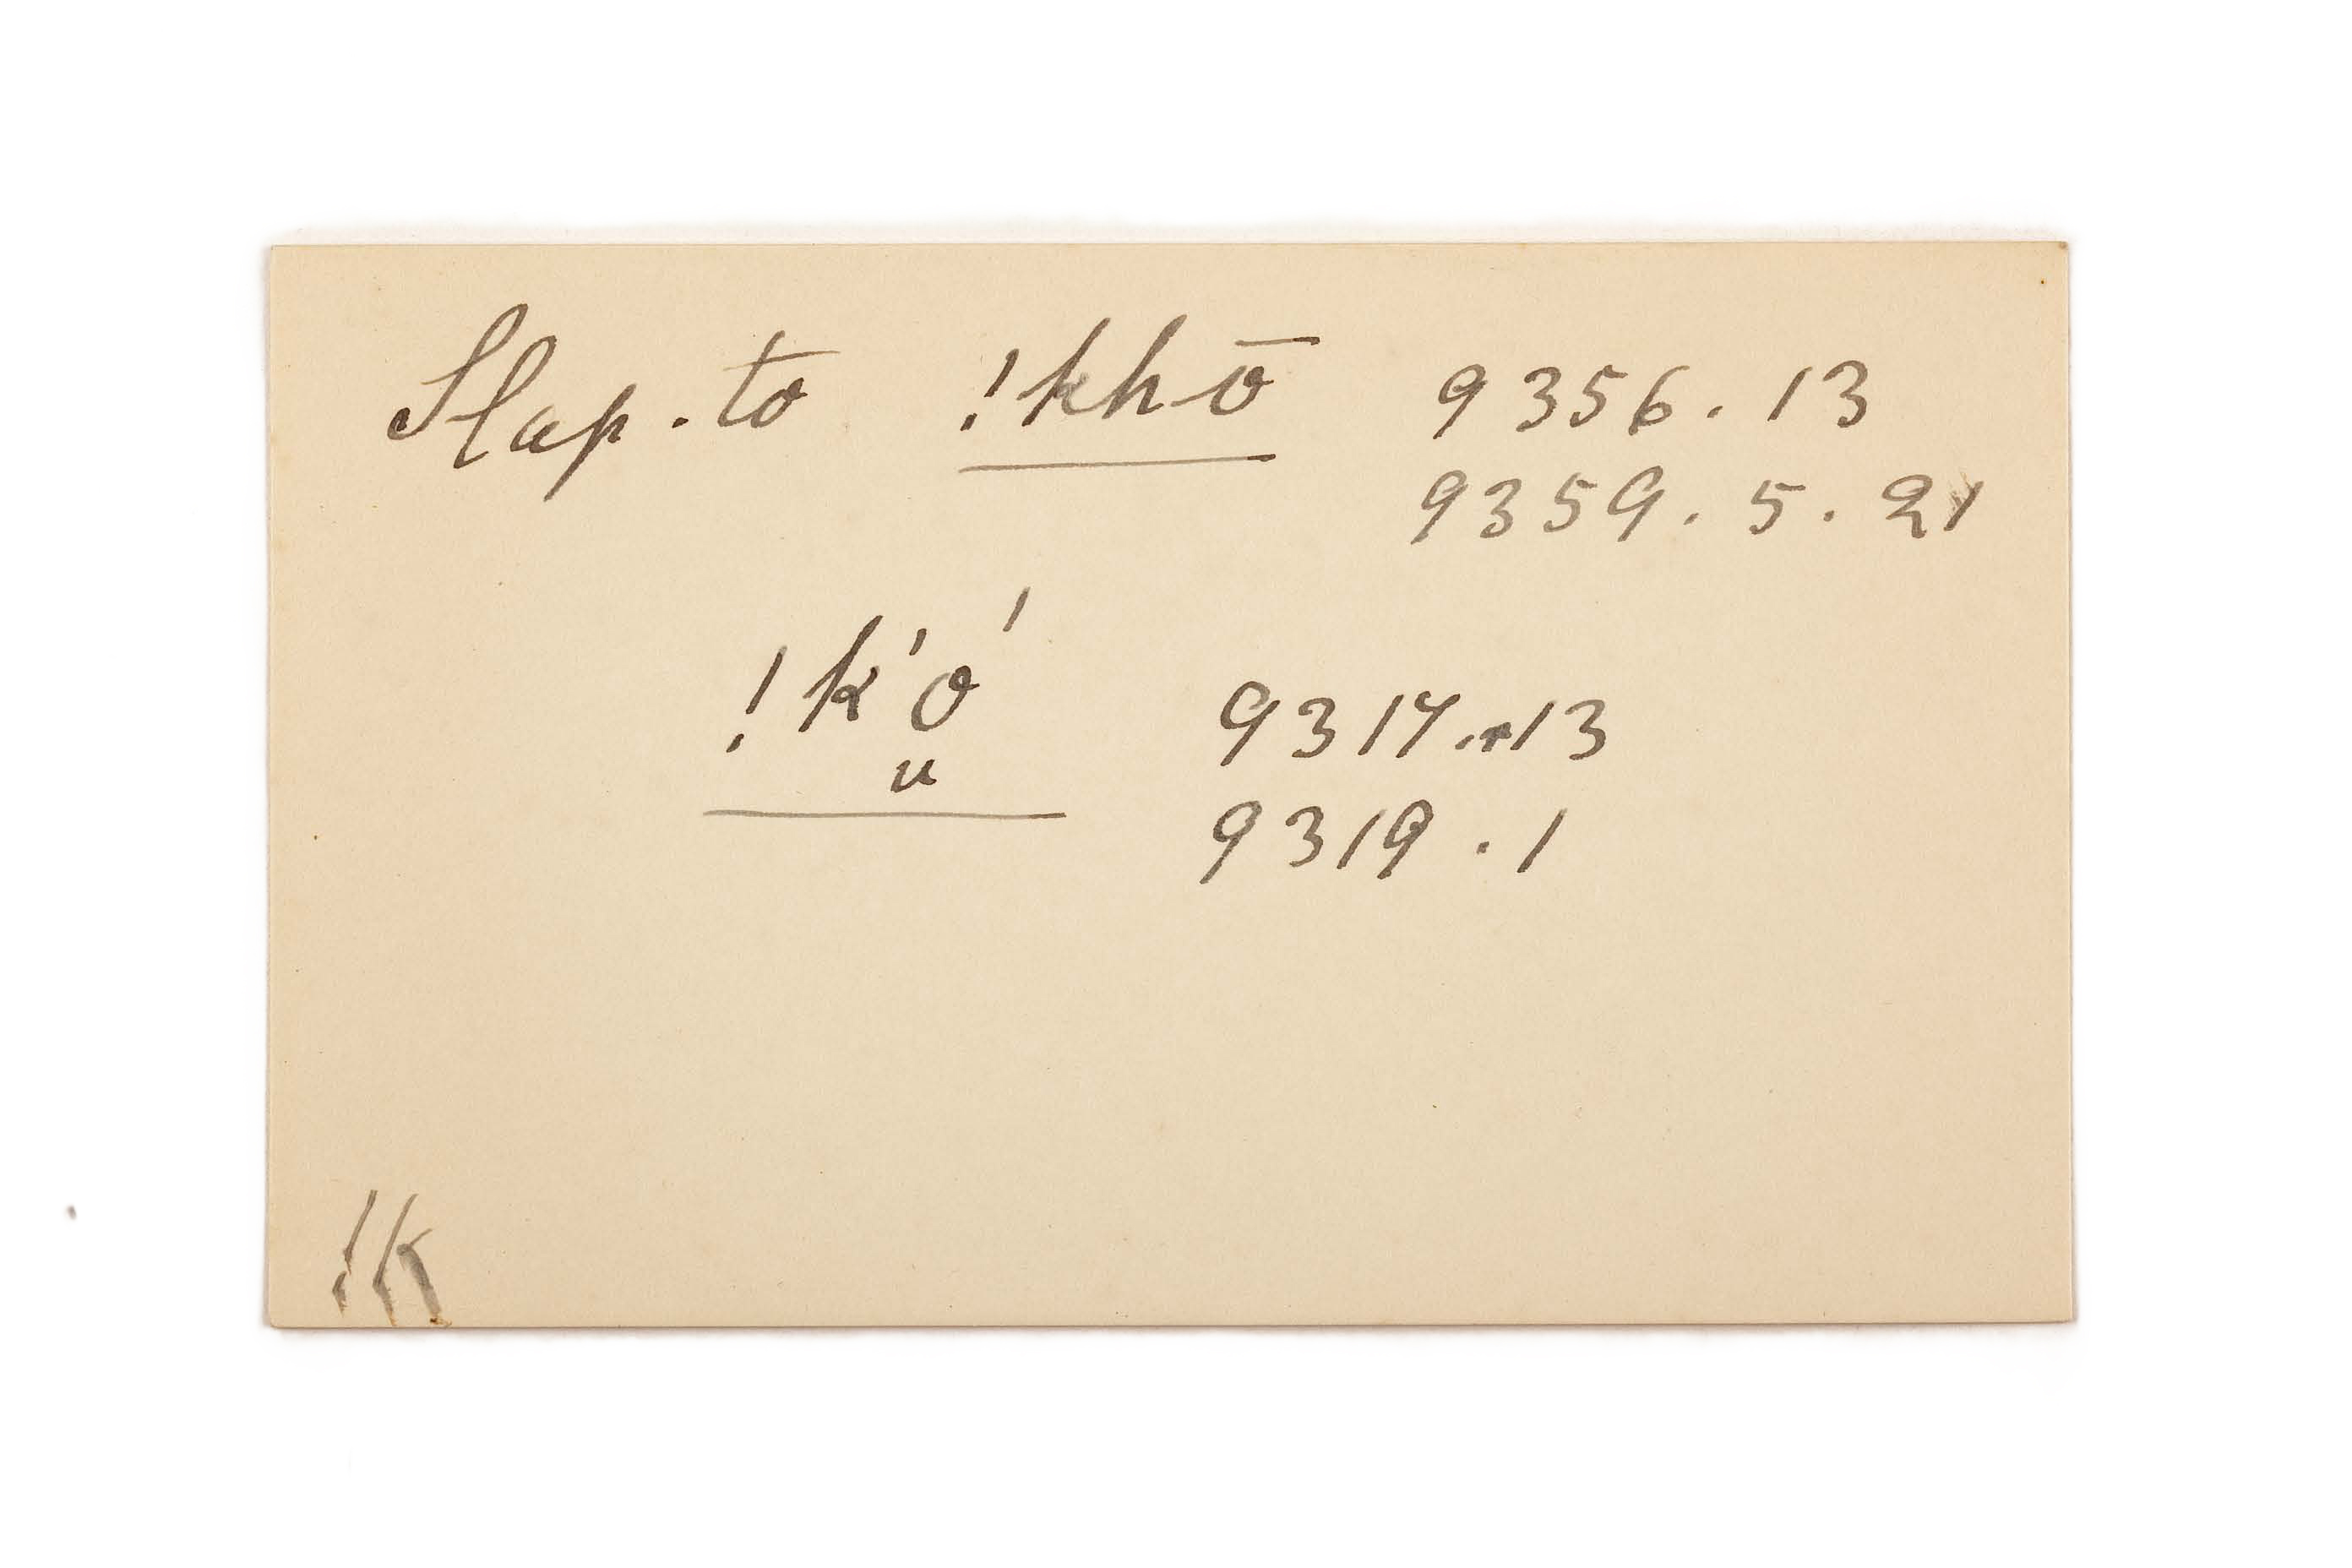 Slap. to !khō 9356. 13
9359. 5. 21
!k'o̮´ 9317. 13
9319. 1
!k